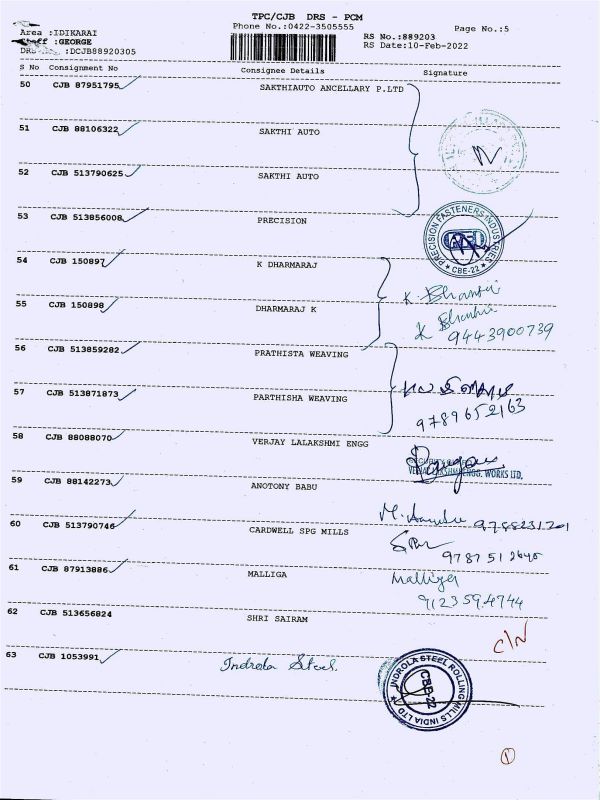 TPC/CJB DRS - PCM
Phone No.:0422-3505555
Page No.:5
Area :IDIKARAI
Staff :GEORGE
DRS :DCJB88920305
RS No.:889203
RS Date:10-Feb-2022
S No Consignment No Consignee Details Signature
50 CJB 87951795 SAKTHIAUTO ANCELLARY P.LTD
51 CJB 88106322 SAKTHI AUTO
52 CJB 513790625 SAKTHI AUTO
53 CJB 513856008 PRECISION
PRECISION FASTENERS INDUSTRIES
CBE-22
54 CJB 150897 K DHARMARAJ
55 CJB 150898 DHARMARAJ K
9443900739
56 CJB 513859282 PRATHISTA WEAVING
57 CJB 513871873 PARTHISHA WEAVING
9789652163
58 CJB 88088070 VERJAY LALAKSHMI ENGG
ENGG. WORKS LTD.
59 CJB 88142273 ANOTONY BABU
60 CJB 513790746 CARDWELL SPG MILLS
61 CJB 87913886 MALLIGA
Malliga
9123594744
62 CJB 513656824 SHRI SAIRAM
C/N
63 CJB 1053991 Indrola Steel.
INDROLA STEEL ROLLING MILLS INDIA LTD
CBE-22
1